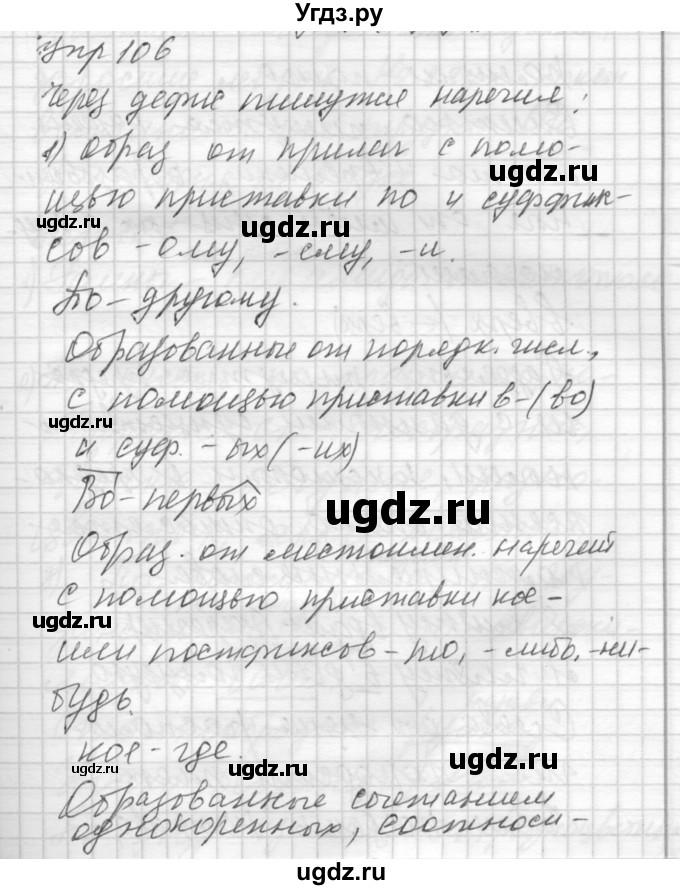 Угдз.ру
Упр 106
Через дефис пишутся наречия:
1) Образ от прилаг с помо-
щью приставки по и суффик-
сов -ому, -ему, -и.
По-другому.
Образованные от порядк. числ.,
с помощью приставки в-(во)
и суф. -ых(-их)
Во-первых
Образ. от местоимен. наречий
с помощью приставки кое-
или постфиксов -то, -либо, -ни-
будь.
кое-где.
Образованные сочетанием
однокоренных, соотноси-
ugdz.ru
ugdz.ru
ugdz.ru
ugdz.ru
ugdz.ru
ugdz.ru
ugdz.ru
ugdz.ru
ugdz.ru
ugdz.ru
ugdz.ru
ugdz.ru